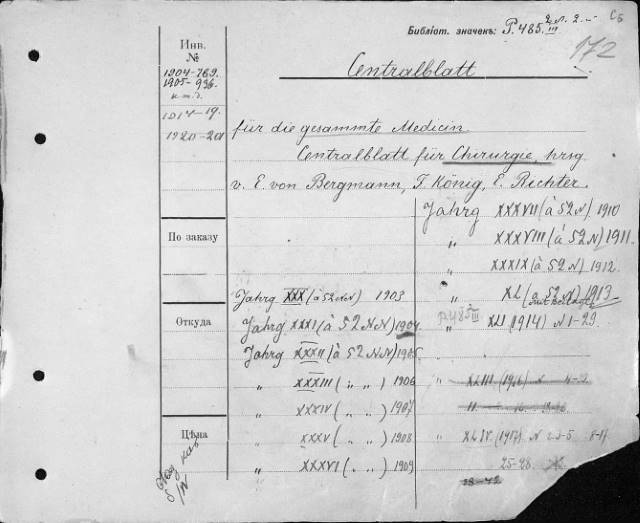 Библіот. значекъ: P.485. III
172
Инв. №
1904-789.
1905-936.
и т. д.
1914-19.
1920-20
Centralblatt
für die gesammte Medicin
Centralblatt für Chirurgie, hrsg
v. E. von Bergmann, F. König, E. Richter.
По заказу
Откуда
Цѣна
Jahrg XXX (à 52 NN) 1903
Jahrg XXXI (à 52 NN) 1904
Jahrg XXXII (à 52 NN) 1905
„ XXXIII („ „) 1906
„ XXXIV („ „) 1907
„ XXXV („ „) 1908
„ XXXVI („ „) 1909
Jahrg XXXVII (à 52 N) 1910
„ XXXVIII (à 52 N) 1911.
XXXIX (à 52 N) 1912.
„ XL (à 52 N) 1913
P485 III „ XLI (1914) N 1-29.
„ XLIII (1916) N
„ XLIV. (1917) N 2-3-5 8-17
25-28.
38-42